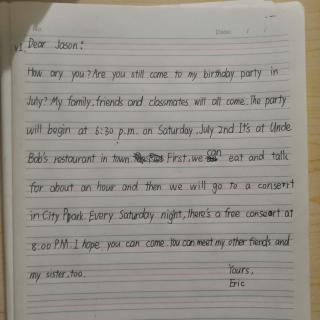 No.
Date: / /
Dear Jason:
How ary you? Are you still come to my birthday party in
July? My family, friends and classmates will all come. The party
will begin at 6:30 p.m. on Saturday, July 2nd It's at Unde
Bob's restaurant in town. First, we can eat and talk
for about an hour and then we will go to a consert
in City Ppark. Every Saturday night, there's a free consert at
8:00 P.M. I hope you can come. You can meet my other fiends and
my sister, too.
Yours,
Eric